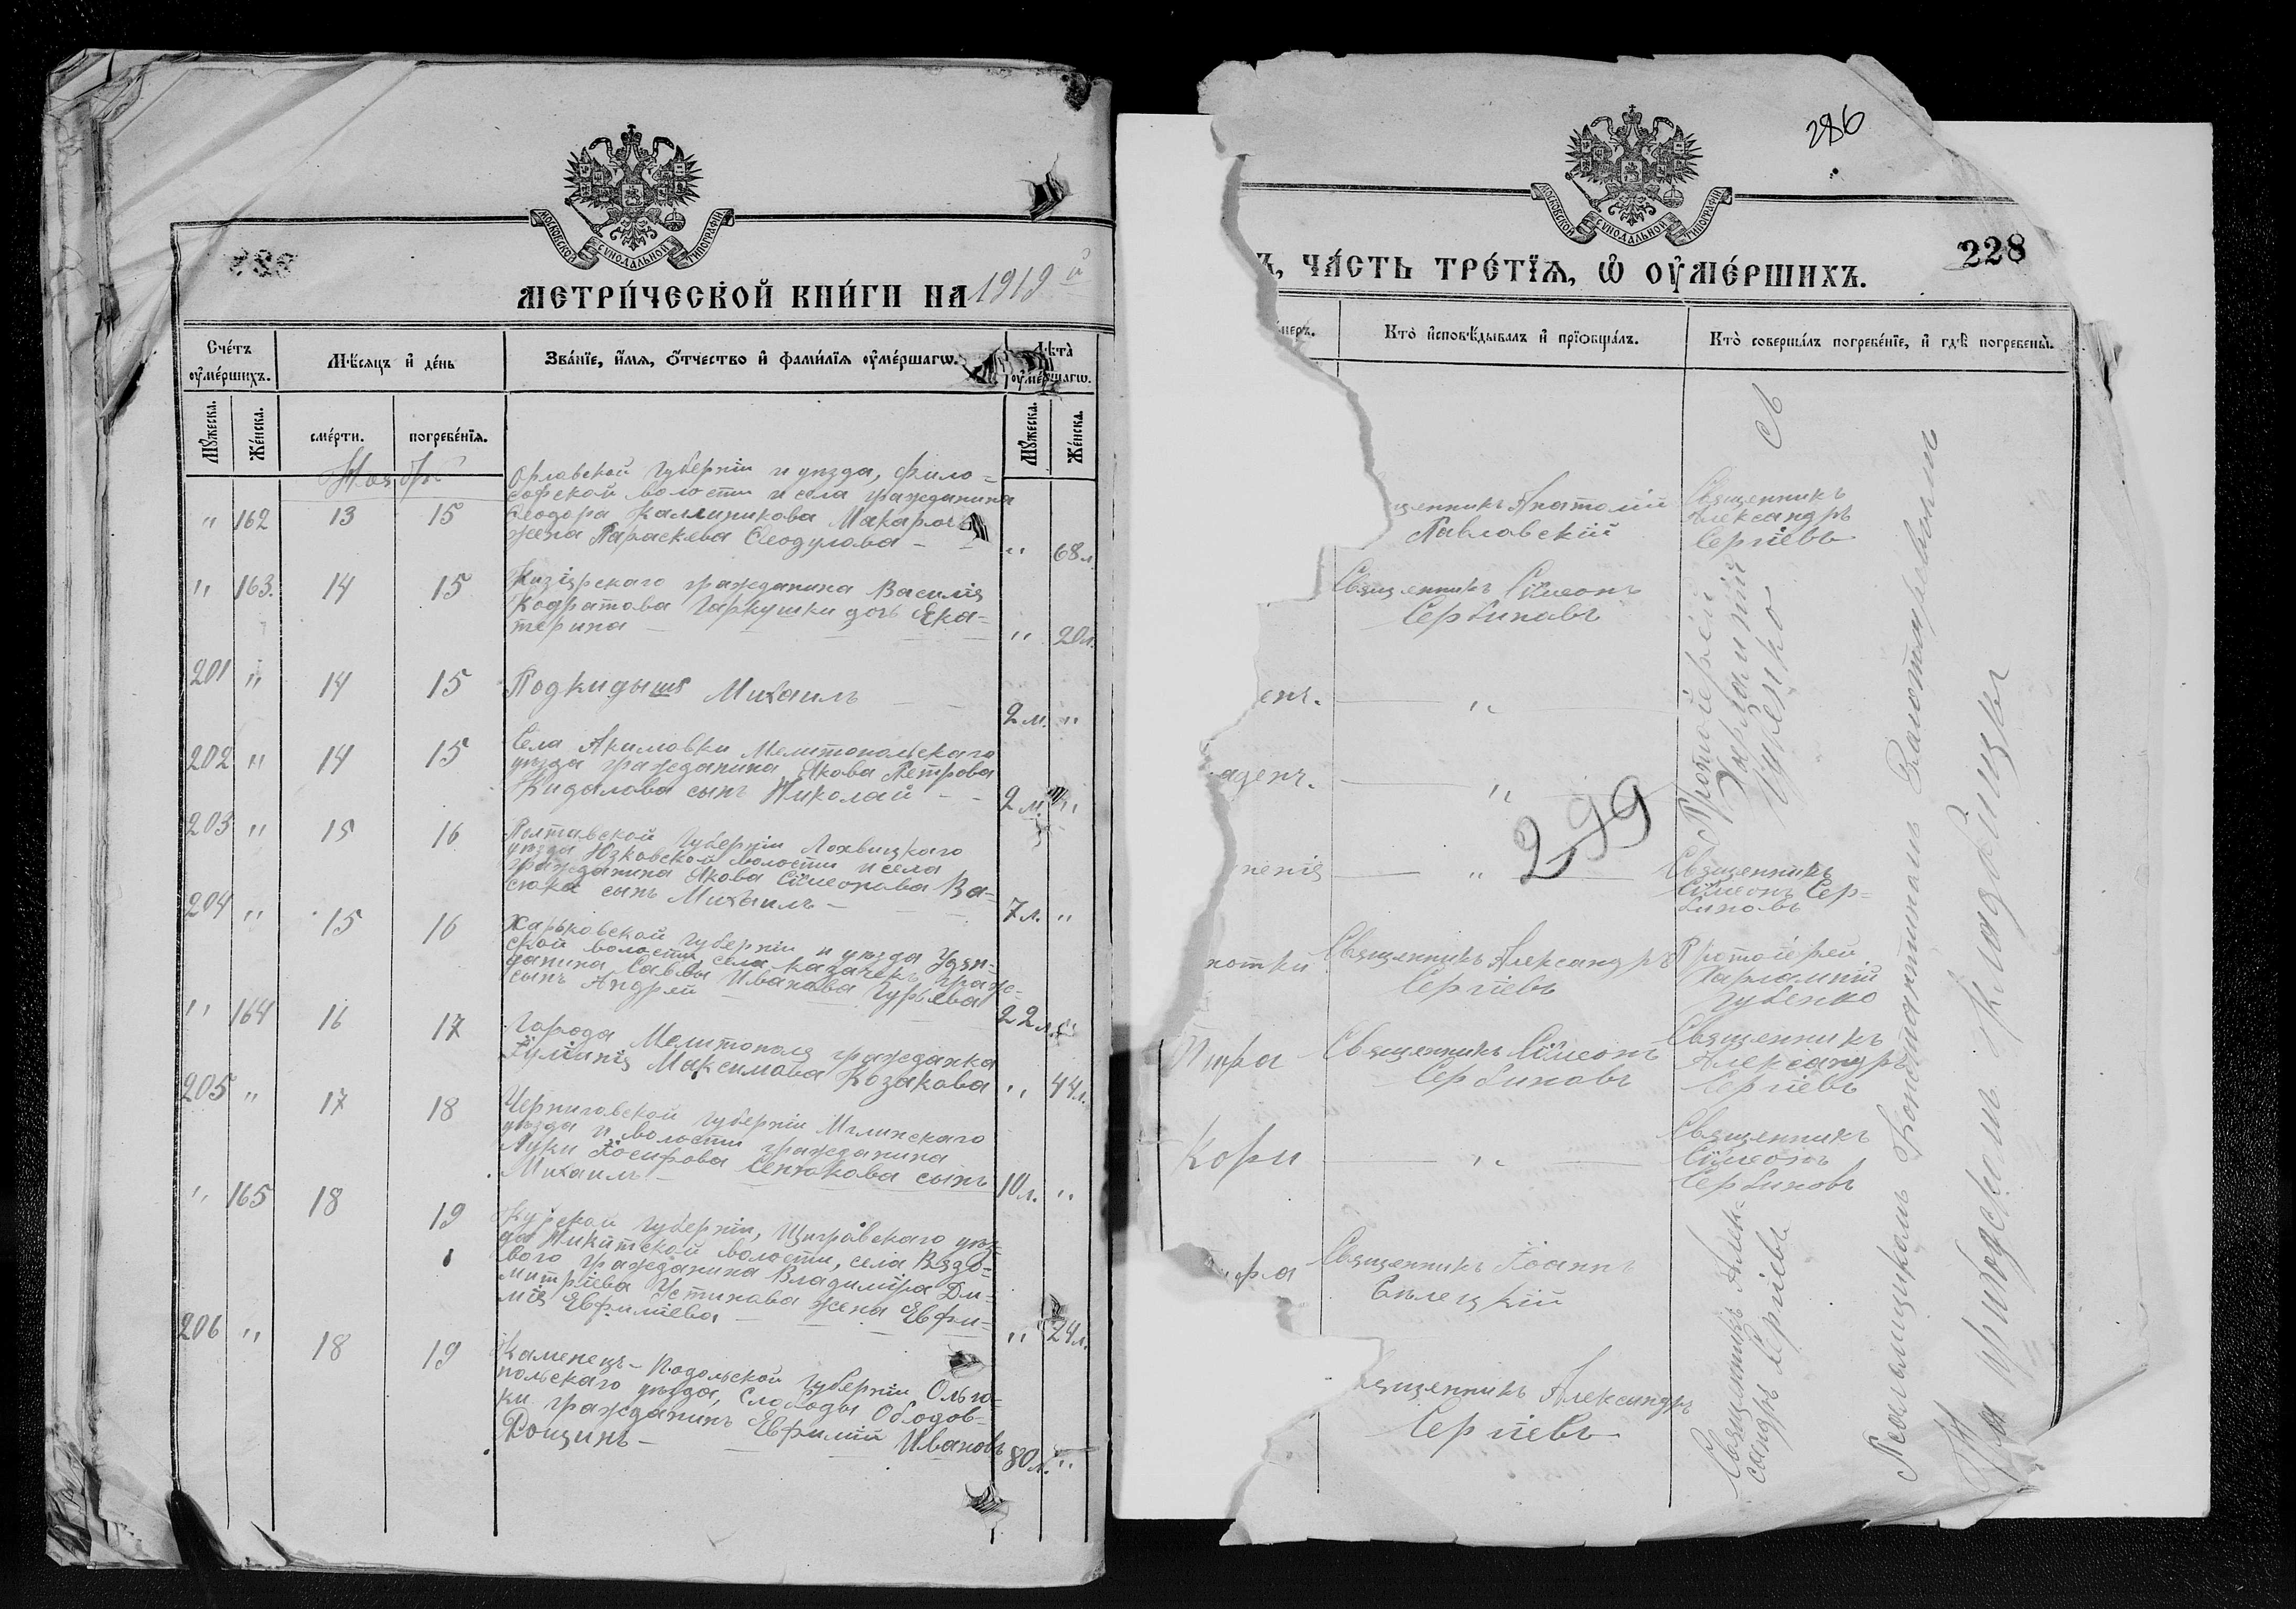 МОСКОВСКОЙ СѴНОДАЛЬНОЙ ТИПОГРАФІИ
МЕТРИ́ЧЕСКОЙ КНИ́ГИ НА 1919 й
Сче́тъ ᲂу҆ме́ршихъ.
Мѣ́сѧцъ и҆ де́нь
Зва́нїе, и҆́мѧ, ѻ҆́тчество и҆ фами́лїѧ ᲂу҆ме́ршагѡ.
Лѣ̀та ᲂу҆ме́ршагѡ.
Мꙋ́жеска.
Же́нска.
сме́рти.
погребе́нїѧ.
Мꙋ́жеска.
Же́нска.
" 162 13 15
Орловской губерніи и уѣзда, Фило=
софской волости и села гражданина
Ѳеодора Каллиникова Макарова
жена Параскева Ѳеодулова –
" 68 л.
" 163. 14 15
Кизіярскаго гражданина Василія
Кодратова Гаркушки дочь Ека=
терина –
" 20 л.
201 " 14 15
Подкидышъ Михаилъ
2 м. "
202 " 14 15
Села Акимовки Мелитопольскаго
уѣзда гражданина Якова Петрова
Кидалова сынъ Николай – –
2 м. "
203 " 15 16
Полтавской губерніи Лохвицкаго
уѣзда Юзковской волости и села
гражданина Якова Сѵмеонова Ва=
сюка сынъ Михаилъ –
7 л. "
204 " 15 16
Харьковской губерніи и уѣзда Удян=
ской волости, села Казачекъ граж=
данина Саввы Иванова Гурьева
сынъ Андрей
22 л. "
" 164 16 17
Города Мелитополя гражданка
Іуліанія Максимова Козакова
" 44 л.
205 " 17 18
Черниговской губерніи Мглинскаго
уѣзда и волости гражданина
Луки Іосифова Сенюкова сынъ
Михаилъ –
10 л. "
" 165 18 19
Курской губерніи, Щигровскаго уѣз=
да Никитской волости, села Вязо=
вого гражданина Владиміра Ди=
митріева Устинова жена Евфи=
мія Евфиміева
" 24 л.
206 " 18 19
Каменецъ-Подольской губерніи Ольго=
польскаго уѣзда, Слободы Ободов=
ки гражданинъ Евфимій Ивановъ
Рощинъ –
80 л. "
286
228
МОСКОВСКОЙ СѴНОДАЛЬНОЙ ТИПОГРАФІИ
Ъ, ЧА́СТЬ ТРЕ́ТЇѦ, Ѡ҆ ОУ҆МЕ́РШИХЪ.
меръ.
Кто̀ и҆сповѣ́дывалъ и҆ прїѡбща́лъ.
Кто̀ соверша́лъ погребе́нїе, и҆ гдѣ̀ погребены̀.
щенникъ Анатолій
Павловскій
Священникъ
Александръ
Сергіевъ
Священникъ Сѵмеонъ
Сербиновъ
Протоіерей
Харлампій
Губенко
енч. "
аденч. "
299
ненія "
Священникъ
Сѵмеонъ Сер=
биновъ
хотки
Священникъ Александръ
Сергіевъ
Протоіерей
Харлампій
Губенко
Тифа
Священникъ Сѵмеонъ
Сербиновъ
Священникъ
Александръ
Сергіевъ
Кори "
Священникъ
Сѵмеонъ
Сербиновъ
ифа
Священникъ Іоаннъ
Бѣлецкій
Священникъ Алек=
сандръ Сергіевъ
ященникъ Александръ
Сергіевъ
С
Псаломщикомъ Константиномъ Златоутровскимъ
На приходскомъ кладбищѣ